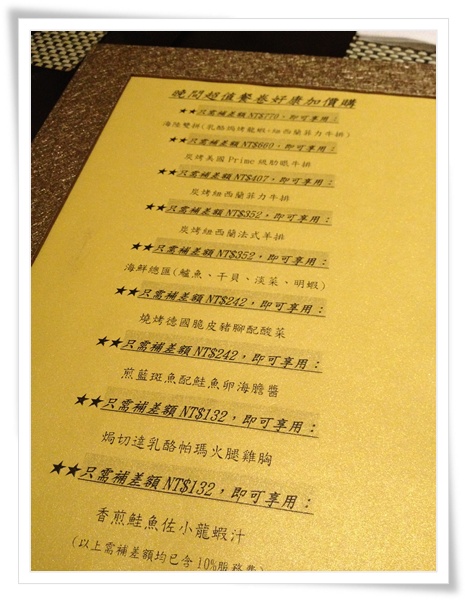 晚間超值餐卷好康加價購
★★只需補差額NT$770，即可享用：
海陸雙拼(乳酪焗烤龍蝦+紐西蘭菲力牛排)
★★只需補差額NT$660，即可享用：
炭烤美國Prime級肋眼牛排
★★只需補差額NT$407，即可享用：
炭烤紐西蘭菲力牛排
★★只需補差額NT$352，即可享用：
炭烤紐西蘭法式羊排
★★只需補差額NT$352，即可享用：
海鮮總匯(鱸魚、干貝、淡菜、明蝦)
★★只需補差額NT$242，即可享用：
燒烤德國脆皮豬腳配酸菜
★★只需補差額NT$242，即可享用：
煎藍斑魚配鮭魚卵海膽醬
★★只需補差額NT$132，即可享用：
焗切達乳酪帕瑪火腿雞胸
★★只需補差額NT$132，即可享用：
香煎鮭魚佐小龍蝦汁
(以上需補差額均已含10%服務費)